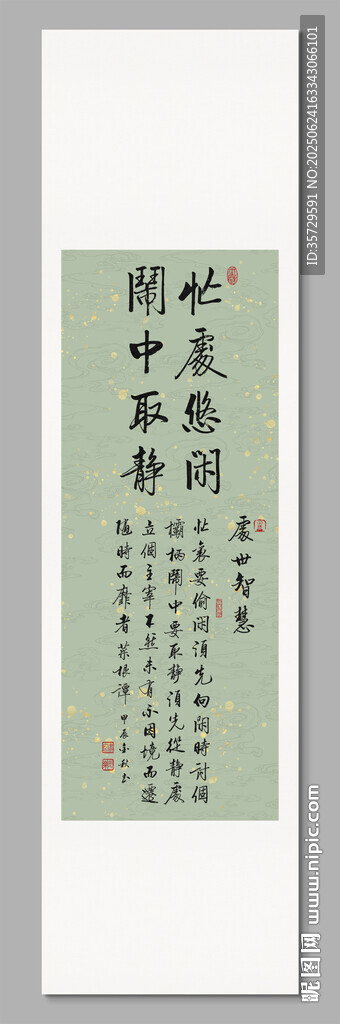 忙處悠閑
鬧中取靜
處世智慧
忙裏要偷閑須先向閑時討個
欛柄鬧中要取靜須先從靜處
立個主宰不然未有不因境而遷
隨時而靡者菜根譚 甲辰金秋書
ID:35729591 NO:20250624163343066101
昵图网 www.nipic.com